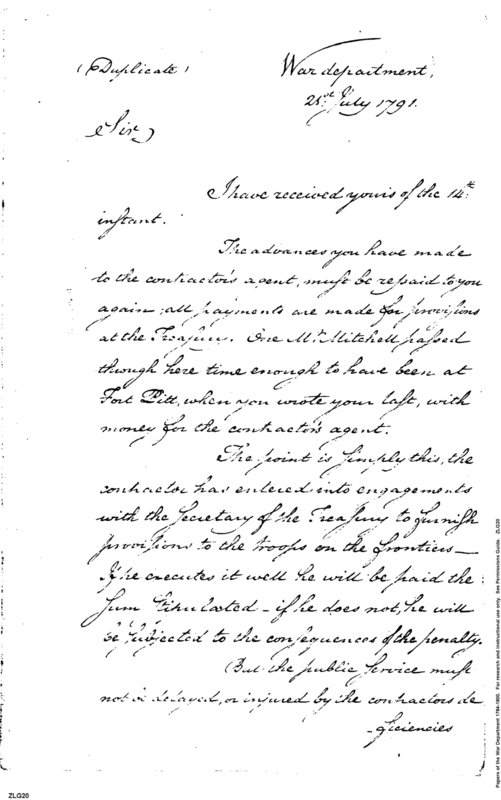 (Duplicate)
War department,
21st July 1791.
Sir,
I have received yours of the 14th
instant.
The advances you have made
to the contractor's agent, must be repaid to you
again; all payments are made for provisions
at the Treasury. One Mr. Mitchell passed
through here time enough to have been at
Fort Pitt, when you wrote your last, with
money for the contractor's agent.
The point is simply this, the
contractor has entered into engagements
with the Secretary of the Treasury to furnish
provisions to the troops on the frontiers—
If he executes it well he will be paid the
sum stipulated – if he does not, he will
be subjected to the consequences of the penalty.
But the public service must
not be delayed, or injured by the contractors de
-ficiencies
ZLG20
Papers of the War Department 1784-1800. For research and instructional use only. See Permissions Guide. ZLG20